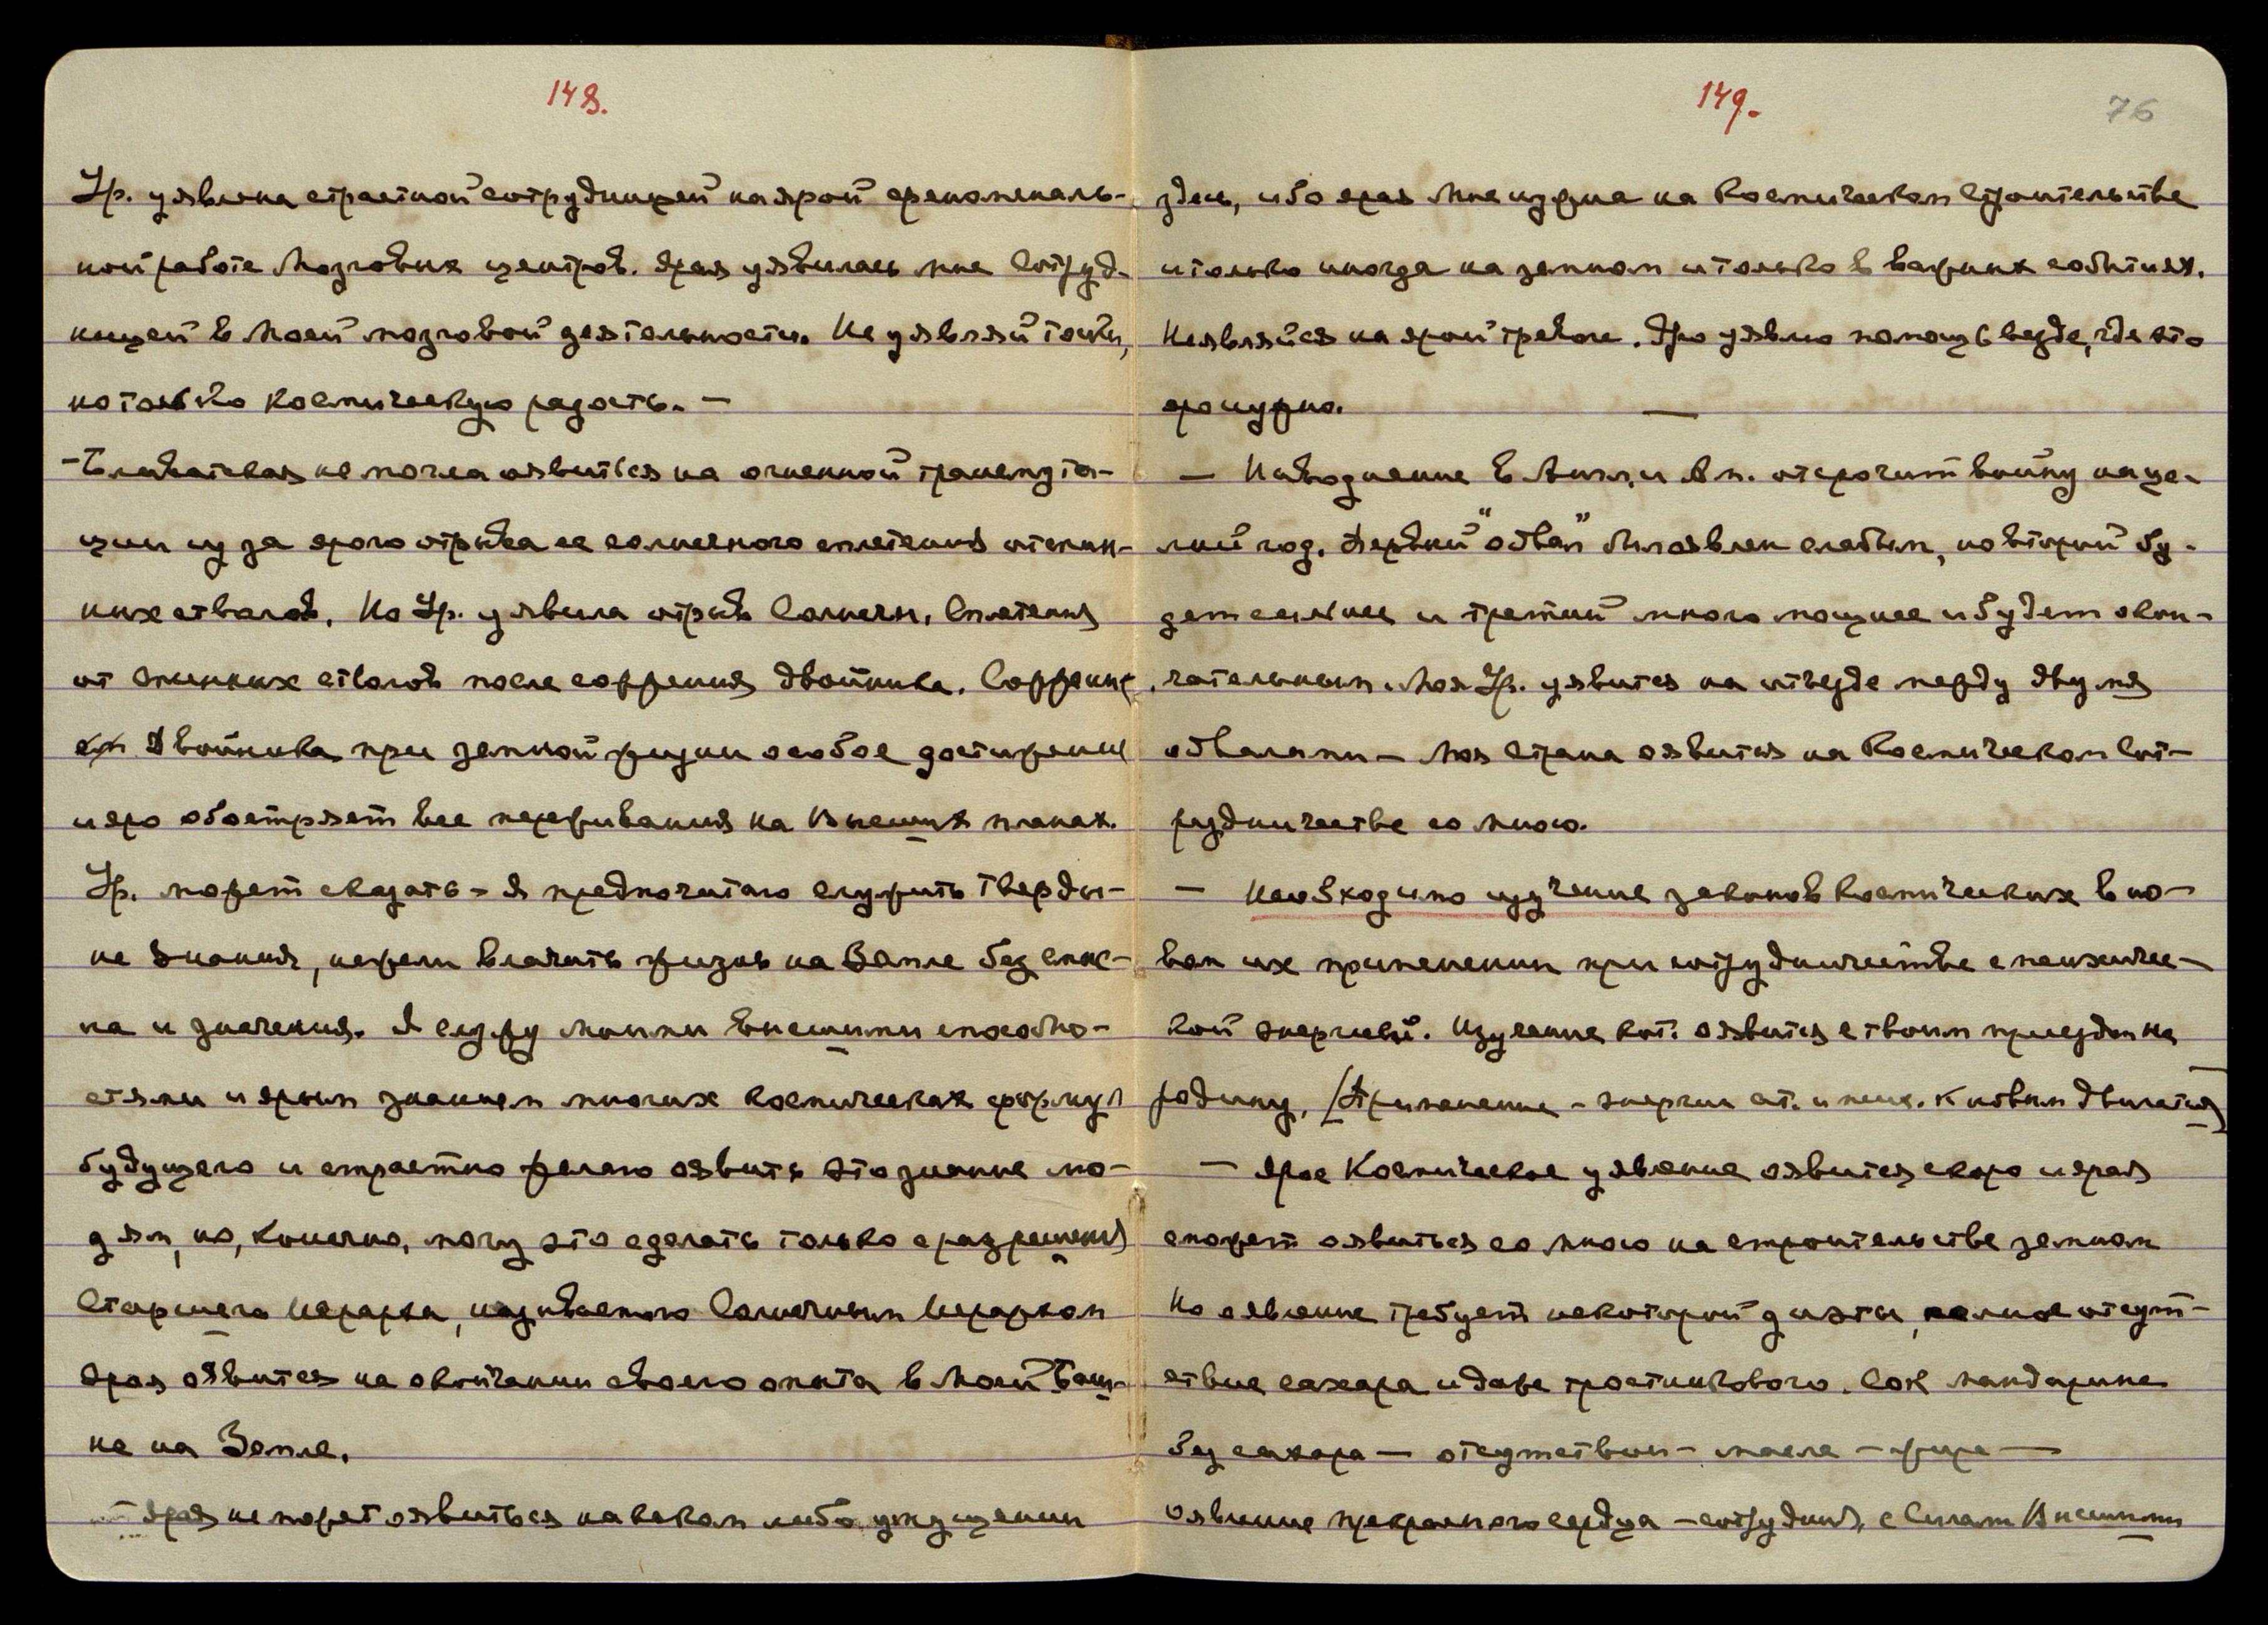 148.
Ур. уявлена страстной сотрудницей на ярой феноменаль-
ной работе Мозговых центров. Ярая уявилась мне Сотруд-
ницей в Моей мозговой деятельности. Не уявляй тоски,
но только космическую радость. —
— Блаватская не могла оявиться на огненной трансмута-
ции из за ярого отрыва ее солнечного сплетения от спин-
ных стволов. Но Ур. уявила отрыв Солнечн. Сплетения
от спинных стволов после сожжения двойника. Сожжение
Двойника при земной жизни особое достижение
и яро обострят все переживания на Высших планах.
Ур. может сказать – Я предпочитаю служить Тверды-
не Знания, нежели влачить жизнь на Земле без смыс-
ла и значения. Я служу моими высшими способно-
стями и ярым знанием многих космических формул
будущего и страстно желаю оявить это знание лю-
дям, но, конечно, могу это сделать только с разрешения
Старшего Иерарха, называемого Солнечным Иерархом
Ярая оявится на окончании своего опыта в Моей Баш-
не на Земле.
— Ярая не может оявиться на каком либо умаде
149.
76
здесь, ибо ярая Мне нужна на Космическом Строительстве
и только иногда на земном и только в важных событиях.
Не являйся на ярой тревоге. Яро уявлю помощь везде, где это
яро нужно.
—
— Наводнение в Англии и Ам. отсрочит войну на це-
лый год. Первый "обвал" был явлен слабым, но вторый бу-
дет сильнее и третий много мощнее и будет окон-
чательным. Моя Ур. уявится на отъезде между двумя
обвалами – Моя Страна оявится на Космическом Сот-
рудничестве со мною.
— Необходимо изучение законов космических в но-
вом их применении при сотрудничестве с психичес-
кой энергией. Изучение кот. оявится с твоим приездом на
родину. [Применение – энергии ст. и псих. к новым двигател]
— Ярое Космическое уявление оявится скоро и ярая
сможет оявиться со мною на строительстве земном
Но оявление требует некоторой диэты, полное отсут-
ствие сахара и даже тростникового. Сок мандарина
без сахара — отсутствии – масла – жира —
оявление прекрасного сердца – сотруднич. с Силами Высшими